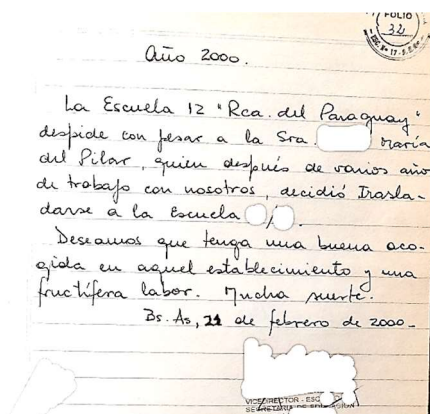 FOLIO
32
Año 2000.
La Escuela 12 "Rca. del Paraguay"
despide con pesar a la Sra. María
del Pilar, quien después de varios año
de trabajo con nosotros, decidió Trasla-
darse a la Escuela /
Deseamos que tenga una buena aco-
gida en aquel establecimiento y una
fructífera labor. Mucha suerte.
Bs. As, 21 de febrero de 2000-
VICEDIRECTOR - ESC
SECRETARIA DE